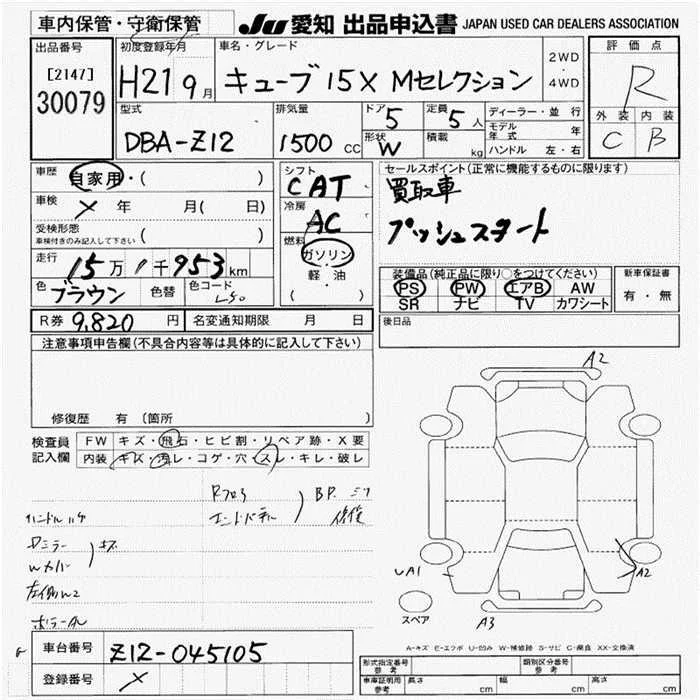 車内保管・守衛保管
JU 愛知 出品申込書 JAPAN USED CAR DEALERS ASSOCIATION
出品番号
[2147]
30079
初度登録年月
H21 9月
車名・グレード
キューブ 15X Mセレクション
2WD
・
4WD
評価点
R
外装 内装
C B
型式
DBA-Z12
排気量
1500 CC
ドア
5
形状
W
定員
5人
積載
kg
ディーラー・並行
モデル年式 年
ハンドル 左・右
車歴
自家用・( )
車検
× 年 月( 日)
受検形態
車検付きのみ記入して下さい ( )
走行
15万1千953km
色
ブラウン
色替
色コード
シフト
CAT
冷房
AC
燃料
ガソリン
軽油
( )
セールスポイント(正常に機能するものに限ります)
買取車
プッシュスタート
装備品(純正品に限り○をつけてください)
PS PW エアB AW
SR ナビ TV カワシート
新車保証書
有・無
R券 9,820 円
名変通知期限 月 日
後日品
注意事項申告欄(不具合内容等は具体的に記入して下さい)
修復歴 有 〔箇所 〕
検査員記入欄
FW キズ・飛石・ヒビ割・リペア跡・X要
内装 キズ・汚レ・コゲ・穴・スレ・キレ・破レ
Rフロア
エンドパネル
BP
修復
ハンドルハゲ
A2
UA1
A2
A3
スペア
A-キズ E-エクボ U-凹み W-補修跡 S-サビ C-腐食 XX-交換済
車台番号
Z12-045105
登録番号
×
形式指定番号
参考
類別区分番号
参考
車庫証明用
参考
長さ cm
幅 cm
高さ cm